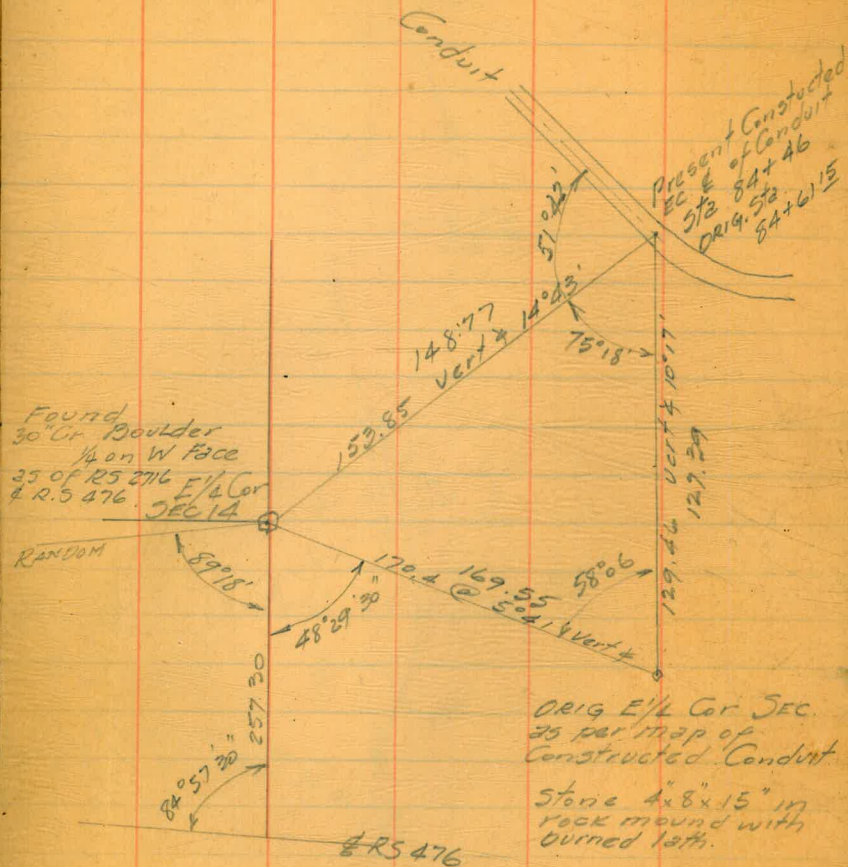 Conduit
Present Constucted
EC ℄ of Conduit
Sta 84+46
ORIG. Sta.
84+61.15
51°42'
148.77
vert ∡ 14°43'
153.85
75°18'
129.46 vert ∡ 10°17'
Found
30" Gr. Boulder
1/4 on W Face
as of RS 2716
& R.S 476
E 1/4 Cor
SEC 14
RANDOM
89°18'
48°29'30"
170.4 @ 5°41' vert ∡
169.55
58°06
257.30
84°57'30"
ORIG E 1/4 Cor SEC.
as per map of
Constructed Conduit
Stone 4"x8"x15" in
rock mound with
burned lath.
RS 476